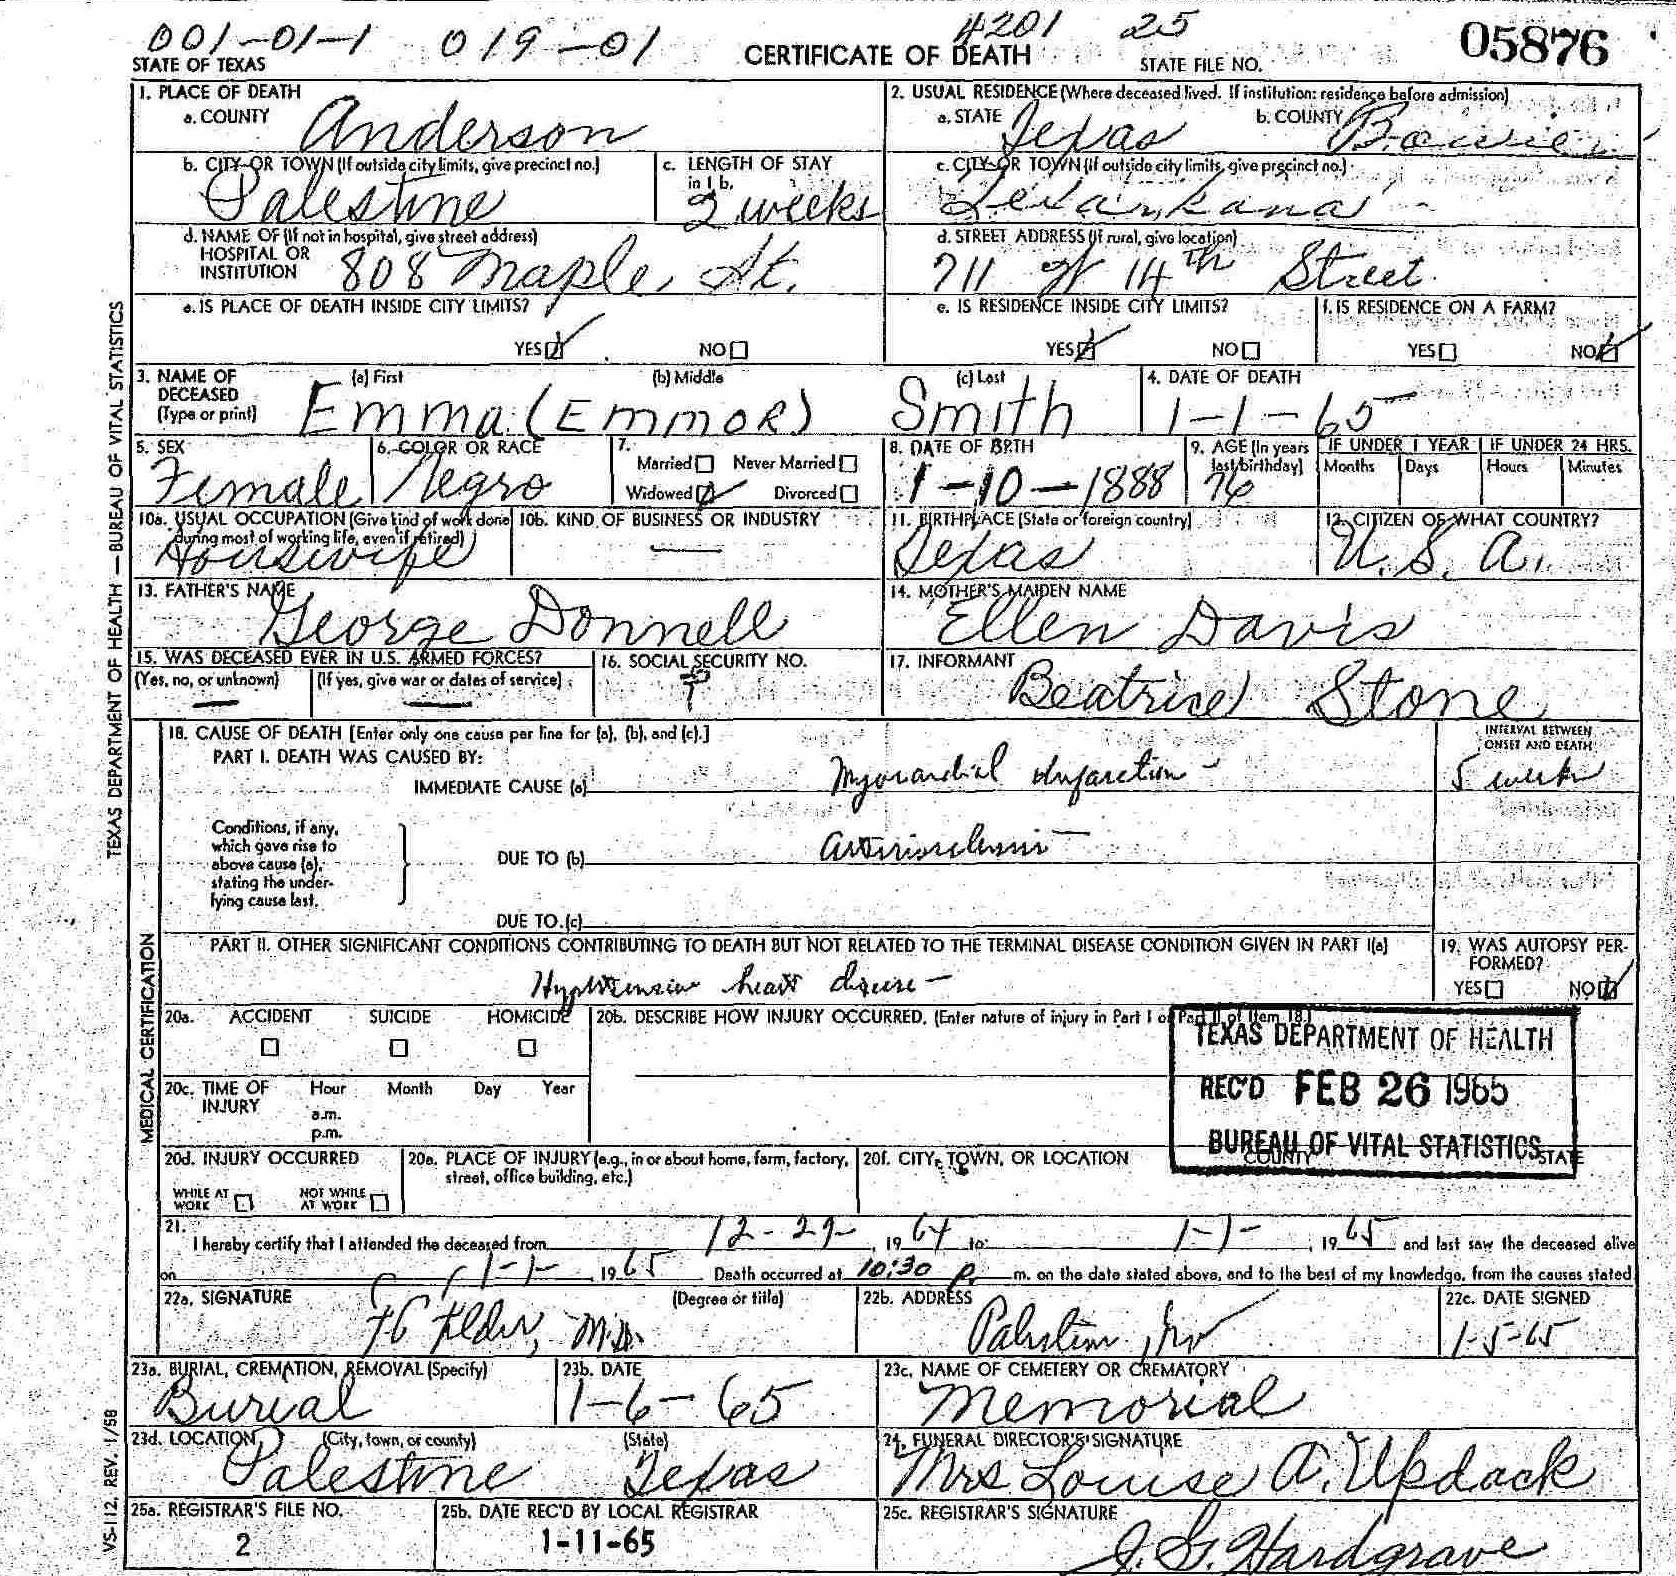 001-01-1 019-01 4201 25
STATE OF TEXAS CERTIFICATE OF DEATH STATE FILE NO. 05876
1. PLACE OF DEATH
a. COUNTY Anderson
2. USUAL RESIDENCE (Where deceased lived. If institution: residence before admission)
a. STATE Texas b. COUNTY Bowie
b. CITY OR TOWN (If outside city limits, give precinct no.) Palestine
c. LENGTH OF STAY in 1 b. 2 weeks
c. CITY OR TOWN (If outside city limits, give precinct no.) Texarkana
d. NAME OF (If not in hospital, give street address) HOSPITAL OR INSTITUTION 808 Maple, St.
d. STREET ADDRESS (If rural, give location) 711 W 14th Street
e. IS PLACE OF DEATH INSIDE CITY LIMITS?
YES NO
e. IS RESIDENCE INSIDE CITY LIMITS?
YES NO
f. IS RESIDENCE ON A FARM?
YES NO
3. NAME OF DECEASED (Type or print) (a) First (b) Middle (c) Last
Emma (EMMOR) Smith
4. DATE OF DEATH 1-1-65
5. SEX Female
6. COLOR OR RACE Negro
7. Married Never Married
Widowed Divorced
8. DATE OF BIRTH 1-10-1888
9. AGE (In years last birthday) 76
IF UNDER 1 YEAR Months Days
IF UNDER 24 HRS. Hours Minutes
10a. USUAL OCCUPATION (Give kind of work done during most of working life, even if retired) Houswife
10b. KIND OF BUSINESS OR INDUSTRY —
11. BIRTHPLACE (State or foreign country) Texas
12. CITIZEN OF WHAT COUNTRY? U.S.A.
13. FATHER'S NAME George Donnell
14. MOTHER'S MAIDEN NAME Ellen Davis
15. WAS DECEASED EVER IN U.S. ARMED FORCES?
(Yes, no, or unknown) — (If yes, give war or dates of service) —
16. SOCIAL SECURITY NO. ?
17. INFORMANT Beatrice Stone
18. CAUSE OF DEATH [Enter only one cause per line for (a), (b), and (c).]
PART I. DEATH WAS CAUSED BY:
IMMEDIATE CAUSE (a) Myocardial Infarction
INTERVAL BETWEEN ONSET AND DEATH 5 weeks
Conditions, if any, which gave rise to above cause (a), stating the underlying cause last.
DUE TO (b) Arteriosclerosis
DUE TO (c)
PART II. OTHER SIGNIFICANT CONDITIONS CONTRIBUTING TO DEATH BUT NOT RELATED TO THE TERMINAL DISEASE CONDITION GIVEN IN PART I(a)
Hypertensive heart disease
19. WAS AUTOPSY PERFORMED?
YES NO
20a. ACCIDENT SUICIDE HOMICIDE
20b. DESCRIBE HOW INJURY OCCURRED. (Enter nature of injury in Part I or Part II of Item 18.)
20c. TIME OF INJURY Hour Month Day Year
a.m.
p.m.
TEXAS DEPARTMENT OF HEALTH
REC'D FEB 26 1965
BUREAU OF VITAL STATISTICS
20d. INJURY OCCURRED
WHILE AT WORK NOT WHILE AT WORK
20e. PLACE OF INJURY (e.g., in or about home, farm, factory, street, office building, etc.)
20f. CITY, TOWN, OR LOCATION COUNTY STATE
21. I hereby certify that I attended the deceased from 12-29-, 1964 to 1-1-, 1965 and last saw the deceased alive
on 1-1-, 1965 Death occurred at 10:30 p. m. on the date stated above, and to the best of my knowledge, from the causes stated
22a. SIGNATURE (Degree or title) M.D.
22b. ADDRESS Palestine
22c. DATE SIGNED 1-5-65
23a. BURIAL, CREMATION, REMOVAL (Specify) Burial
23b. DATE 1-6-65
23c. NAME OF CEMETERY OR CREMATORY Memorial
23d. LOCATION (City, town, or county) (State)
Palestine Texas
24. FUNERAL DIRECTOR'S SIGNATURE Mrs Louise A. Updack
25a. REGISTRAR'S FILE NO. 2
25b. DATE REC'D BY LOCAL REGISTRAR 1-11-65
25c. REGISTRAR'S SIGNATURE J. G. Hardgrave
TEXAS DEPARTMENT OF HEALTH — BUREAU OF VITAL STATISTICS
MEDICAL CERTIFICATION
VS-112, REV. 1/58